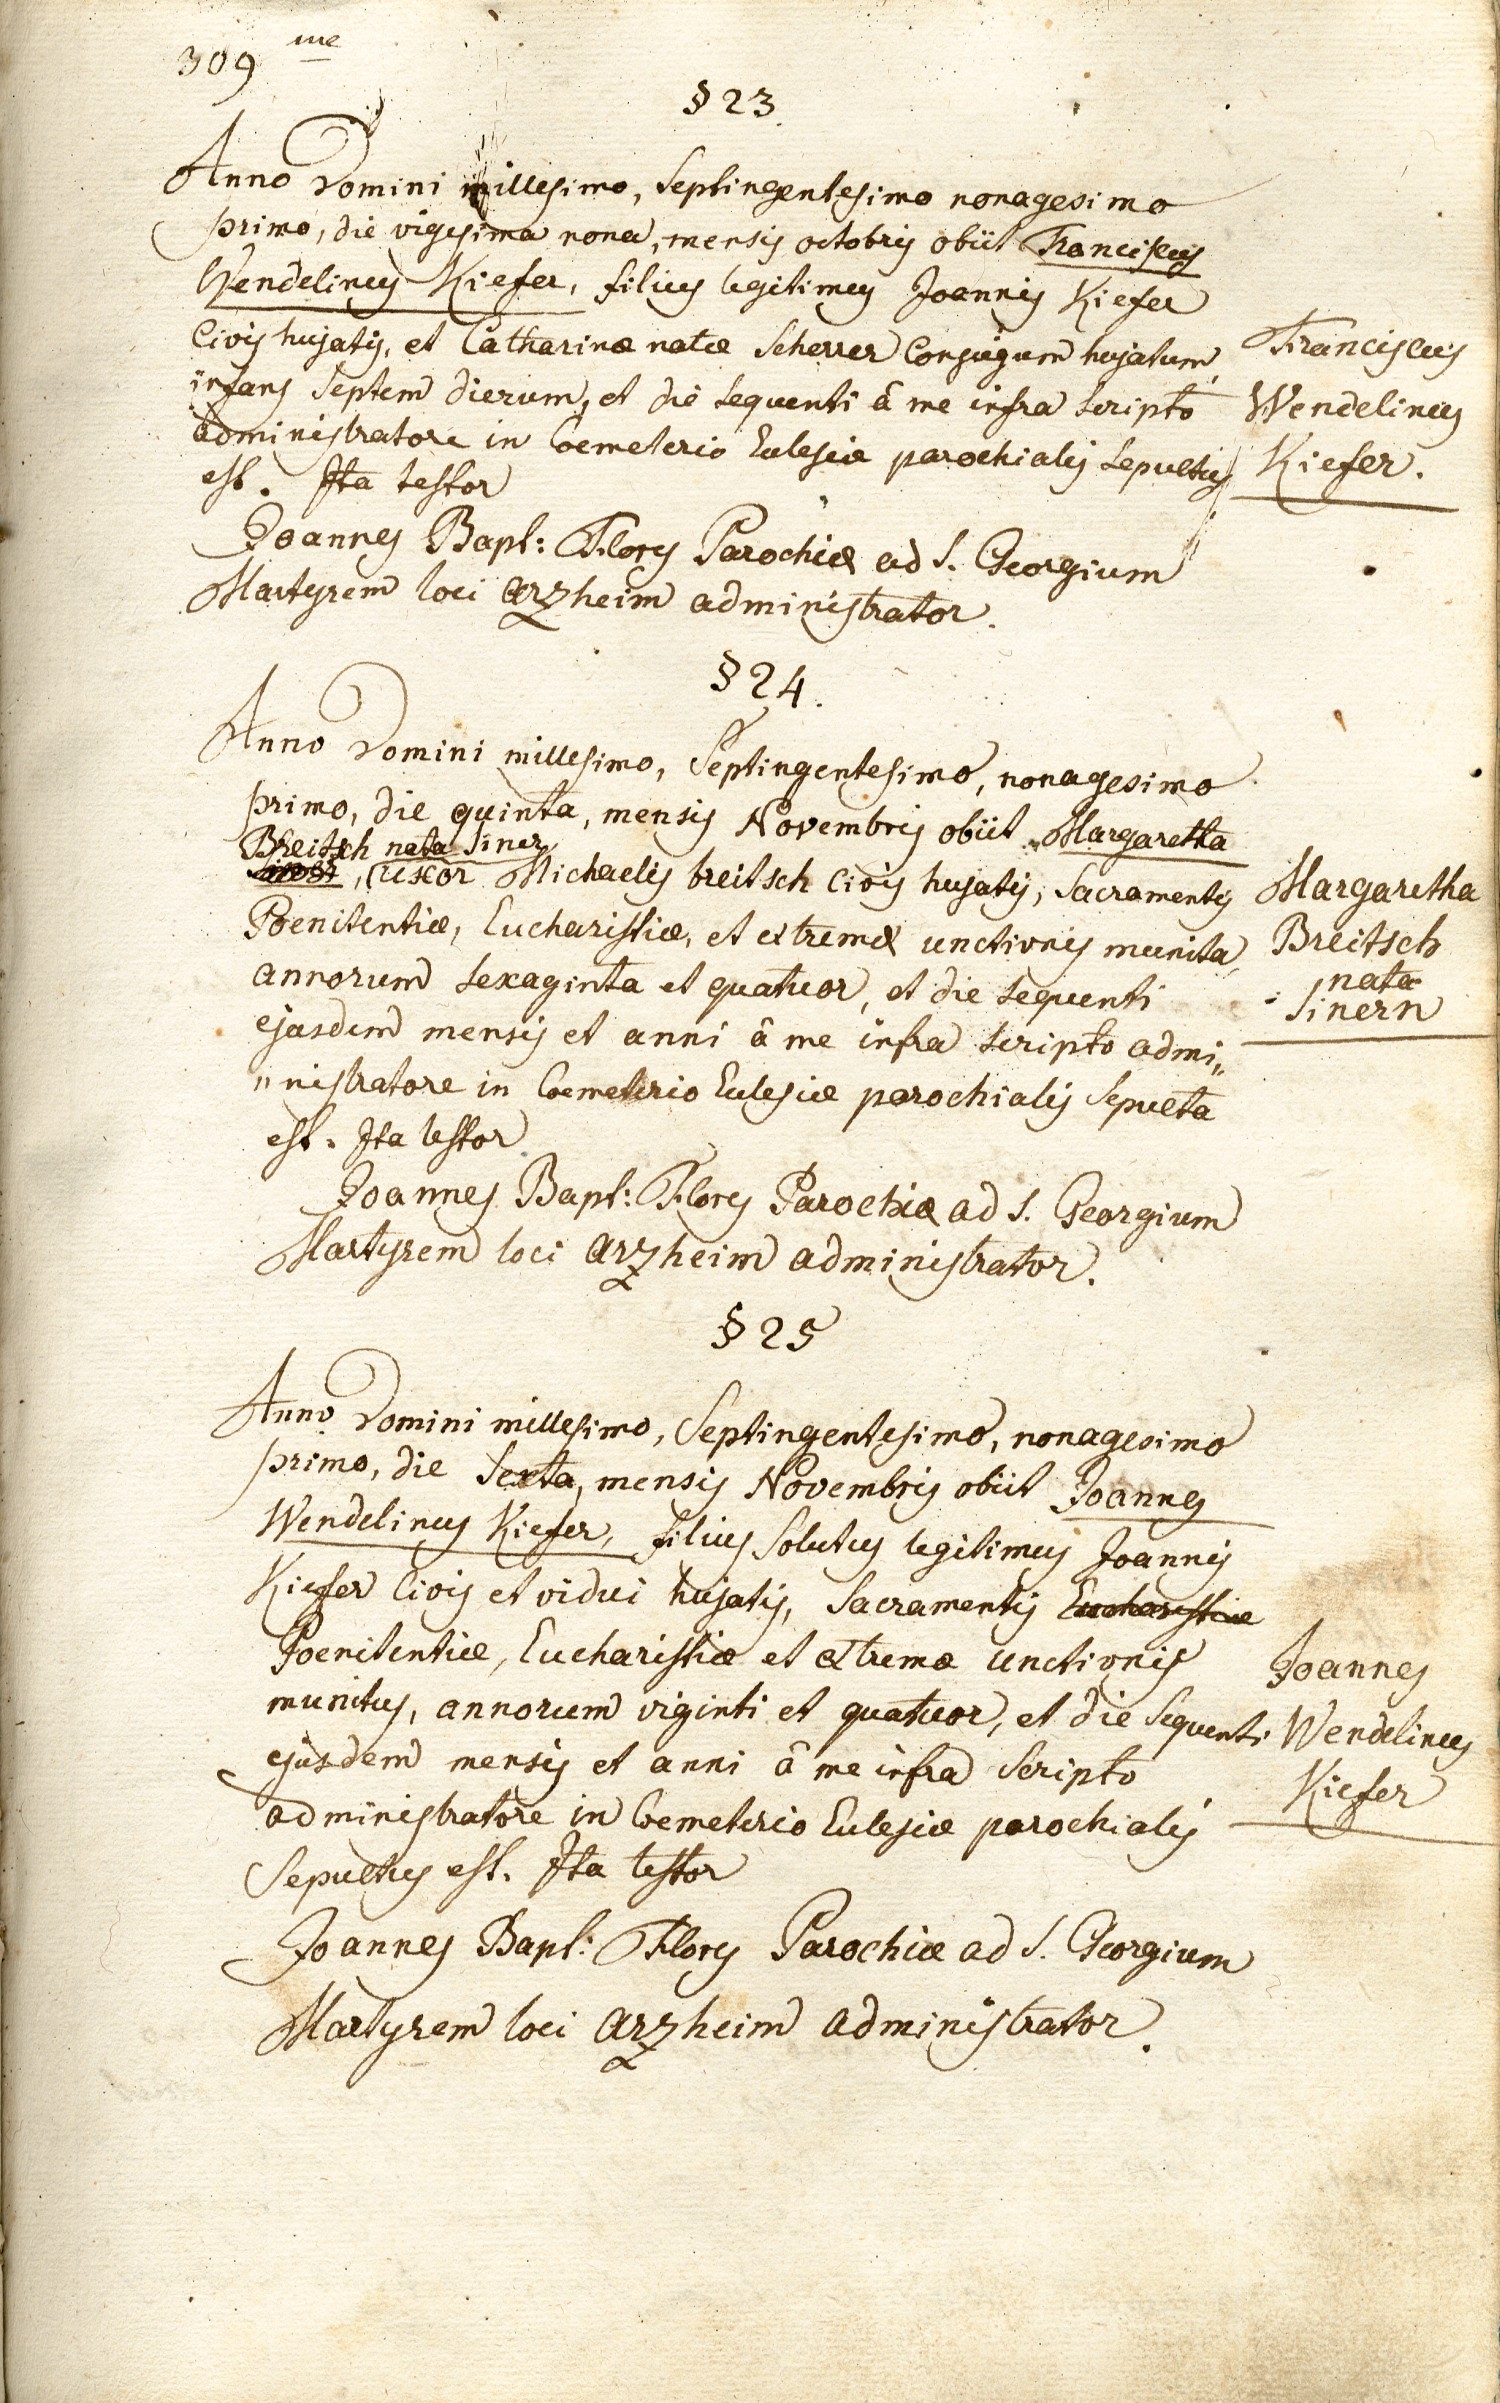 309 me
§ 23.
Anno Domini millesimo, Septingentesimo nonagesimo
primo, die vigesima nona, mensis octobris obiit Franciscus
Wendelinus Kiefer, filius legitimus Joannis Kiefer
Civis hujatis, et Catharinæ natæ Scherrer Conjugum hujatum,
infans Septem dierum, et die sequenti â me infra scripto
administratore in Coemeterio Eclesiæ parochialis sepultus
est. Ita testor
Franciscus
Wendelinus
Kiefer.
Joannes Bapt: Flory Parochiæ ad S. Georgium
Martyrem loci arzheim administrator.
§ 24.
Anno Domini millesimo, Septingentesimo, nonagesimo
primo, die quinta, mensis Novembris obiit Margaretha
Breitsch nata Siner
, uxor Michaelis breitsch Civis hujatis, Sacramentis
Poenitentiæ, Eucharistiæ, et extremæ unctionis munita,
annorum sexaginta et quatuor, et die sequenti
ejusdem mensis et anni â me infra scripto admi„
„nistratore in Coemeterio Eclesiæ parochialis Sepulta
est. Ita testor
Margaretha
Breitsch
nata
Sinern
Joannes Bapt: Flory Parochiæ ad S. Georgium
Martyrem loci arzheim administrator.
§ 25
Anno Domini millesimo, Septingentesimo, nonagesimo
primo, die Sexta, mensis Novembris obiit Joannes
Wendelinus Kiefer, filius Solutus legitimus Joannis
Kiefer Civis et vidui hujatis, Sacramentis Eucharistiæ
Poenitentiæ, Eucharistiæ et extremæ unctionis
munitus, annorum viginti et quatuor, et die Sequenti
ejusdem mensis et anni â me infra Scripto
administratore in Coemeterio Eclesiæ parochialis
Sepultus est. Ita testor
Joannes
Wendelinus
Kiefer
Joannes Bapt: Flory Parochiæ ad S. Georgium
Martyrem loci arzheim administrator.